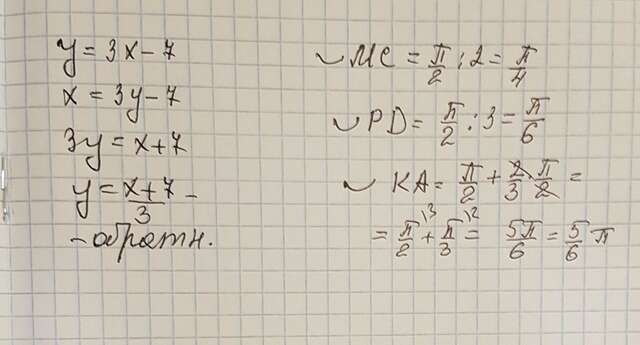 y = 3x - 7
x = 3y - 7
3y = x + 7
y = x+7/3 -
- обратн.
◡ MC = π/2 : 2 = π/4
◡ PD = π/2 : 3 = π/6
◡ KA = π/2 + 2/3 · π/2 =
= π/2 \3 + π/3 \2 = 5π/6 = 5/6 π